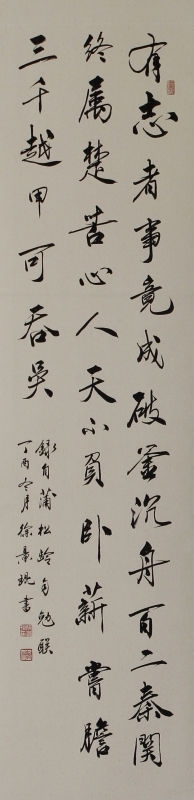 有志者事竟成破釜沉舟百二秦關
終属楚苦心人天不負卧薪嘗膽
三千越甲可吞吳
錄自蒲松齡自勉聯
丁酉冬月徐景書